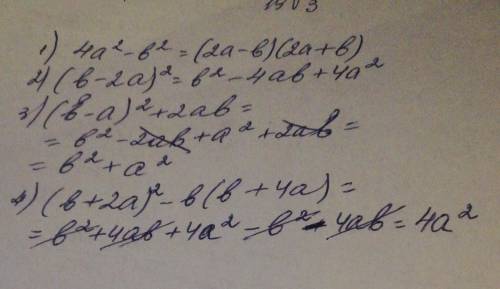 1) 4a² - b² = (2a-b)(2a+b)
2) (b-2a)² = b² - 4ab + 4a²
3) (b-a)² + 2ab =
= b² - 2ab + a² + 2ab =
= b² + a²
4) (b+2a)² - b(b+4a) =
= b² + 4ab + 4a² - b² - 4ab = 4a²